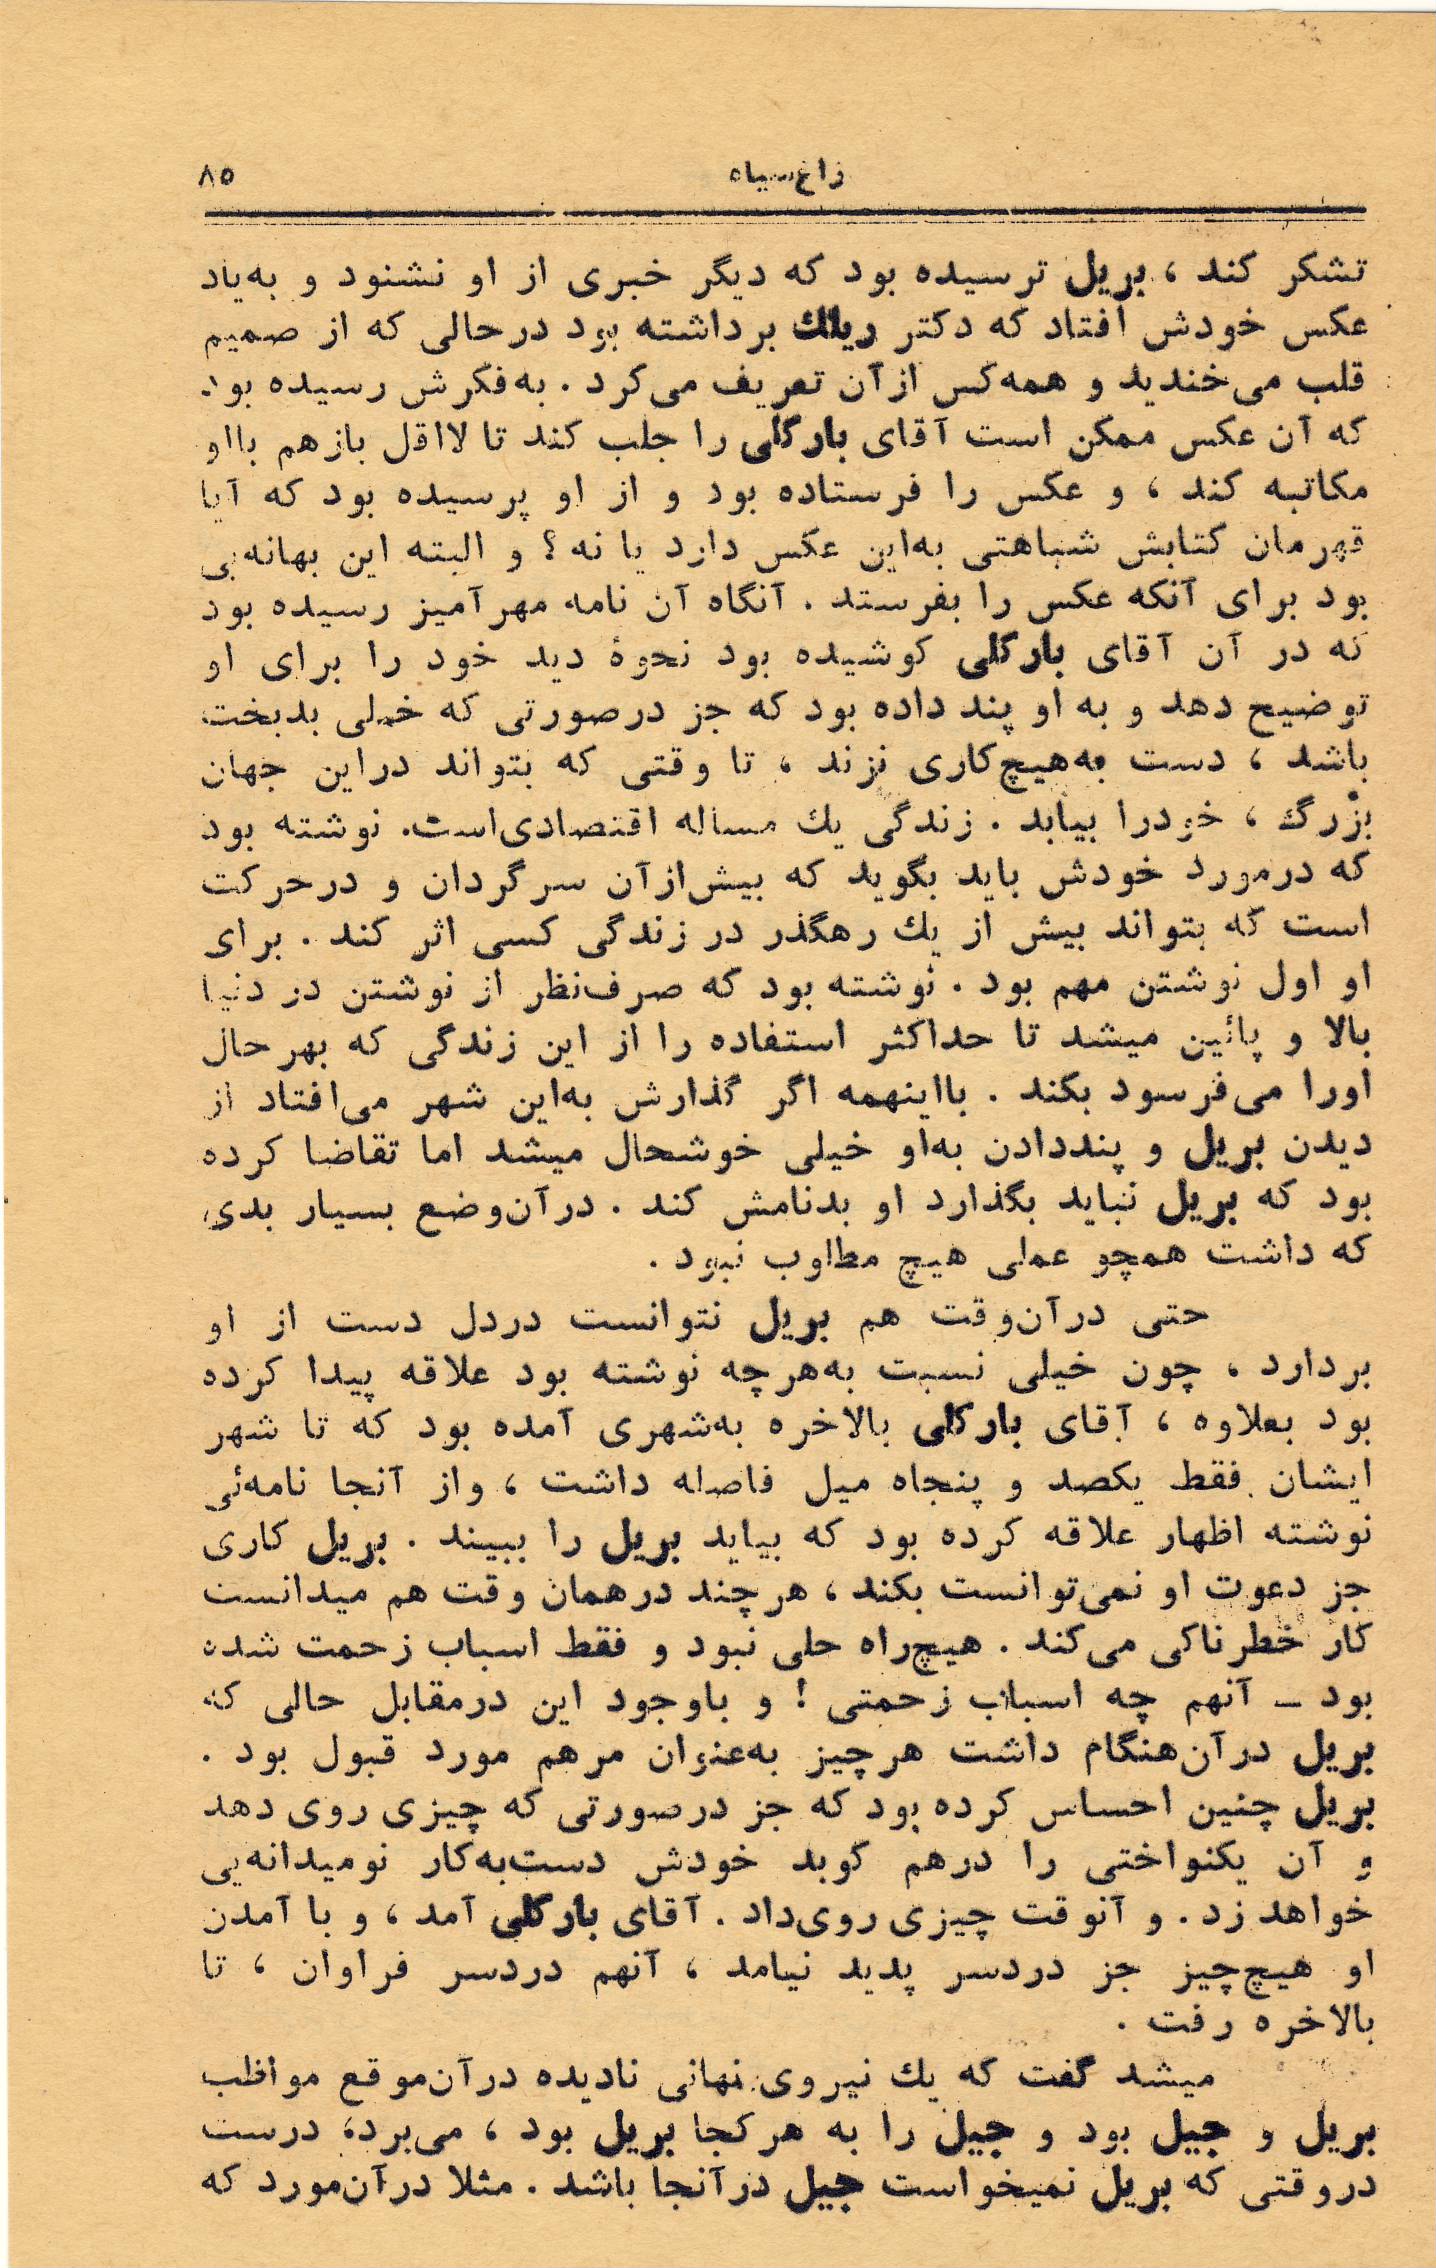 زاغ‌سیاه ۸۵
تشکر کند ، بریل ترسیده بود که دیگر خبری از او نشنود و به‌یاد
عکس خودش افتاد که دکتر ریلك برداشته بود درحالی که از صمیم
قلب می‌خندید و همه‌کس ازآن تعریف می‌کرد . به‌فکرش رسیده بود
که آن عکس ممکن است آقای بارکلی را جلب کند تا لااقل بازهم بااو
مکاتبه کند ، و عکس را فرستاده بود و از او پرسیده بود که آیا
قهرمان کتابش شباهتی به‌این عکس دارد یا نه ؟ و البته این بهانه‌یی
بود برای آنکه عکس را بفرستد . آنگاه آن نامه مهرآمیز رسیده بود
که در آن آقای بارکلی کوشیده بود نحوهٔ دید خود را برای او
توضیح دهد و به او پند داده بود که جز درصورتی که خیلی بدبخت
باشد ، دست به‌هیچ‌کاری نزند ، تا وقتی که بتواند دراین جهان
بزرگ ، خودرا بیابد . زندگی یك مساله اقتصادی‌است. نوشته بود
که درمورد خودش باید بگوید که بیش‌ازآن سرگردان و درحرکت
است که بتواند بیش از یك رهگذر در زندگی کسی اثر کند . برای
او اول نوشتن مهم بود . نوشته بود که صرف‌نظر از نوشتن در دنیا
بالا و پائین میشد تا حداکثر استفاده را از این زندگی که بهرحال
اورا می‌فرسود بکند . بااینهمه اگر گذارش به‌این شهر می‌افتاد از
دیدن بریل و پنددادن به‌او خیلی خوشحال میشد اما تقاضا کرده
بود که بریل نباید بگذارد او بدنامش کند . درآن‌وضع بسیار بدی
که داشت همچو عملی هیچ مطلوب نبود .
حتی درآن‌وقت هم بریل نتوانست دردل دست از او
بردارد ، چون خیلی نسبت به‌هرچه نوشته بود علاقه پیدا کرده
بود بعلاوه ، آقای بارکلی بالاخره به‌شهری آمده بود که تا شهر
ایشان فقط یکصد و پنجاه میل فاصله داشت ، واز آنجا نامه‌ئی
نوشته اظهار علاقه کرده بود که بیاید بریل را ببیند . بریل کاری
جز دعوت او نمی‌توانست بکند ، هرچند درهمان وقت هم میدانست
کار خطرناکی می‌کند . هیچ‌راه حلی نبود و فقط اسباب زحمت شده
بود ــ آنهم چه اسباب زحمتی ! و باوجود این درمقابل حالی که
بریل درآن‌هنگام داشت هرچیز به‌عنوان مرهم مورد قبول بود .
بریل چنین احساس کرده بود که جز درصورتی که چیزی روی دهد
و آن یکنواختی را درهم کوبد خودش دست‌به‌کار نومیدانه‌یی
خواهد زد . و آنوقت چیزی روی‌داد . آقای بارکلی آمد ، و با آمدن
او هیچ‌چیز جز دردسر پدید نیامد ، آنهم دردسر فراوان ، تا
بالاخره رفت .
میشد گفت که یك نیروی نهانی نادیده درآن‌موقع مواظب
بریل و جیل بود و جیل را به هرکجا بریل بود ، می‌برد، درست
دروقتی که بریل نمیخواست جیل درآنجا باشد . مثلا درآن‌مورد که